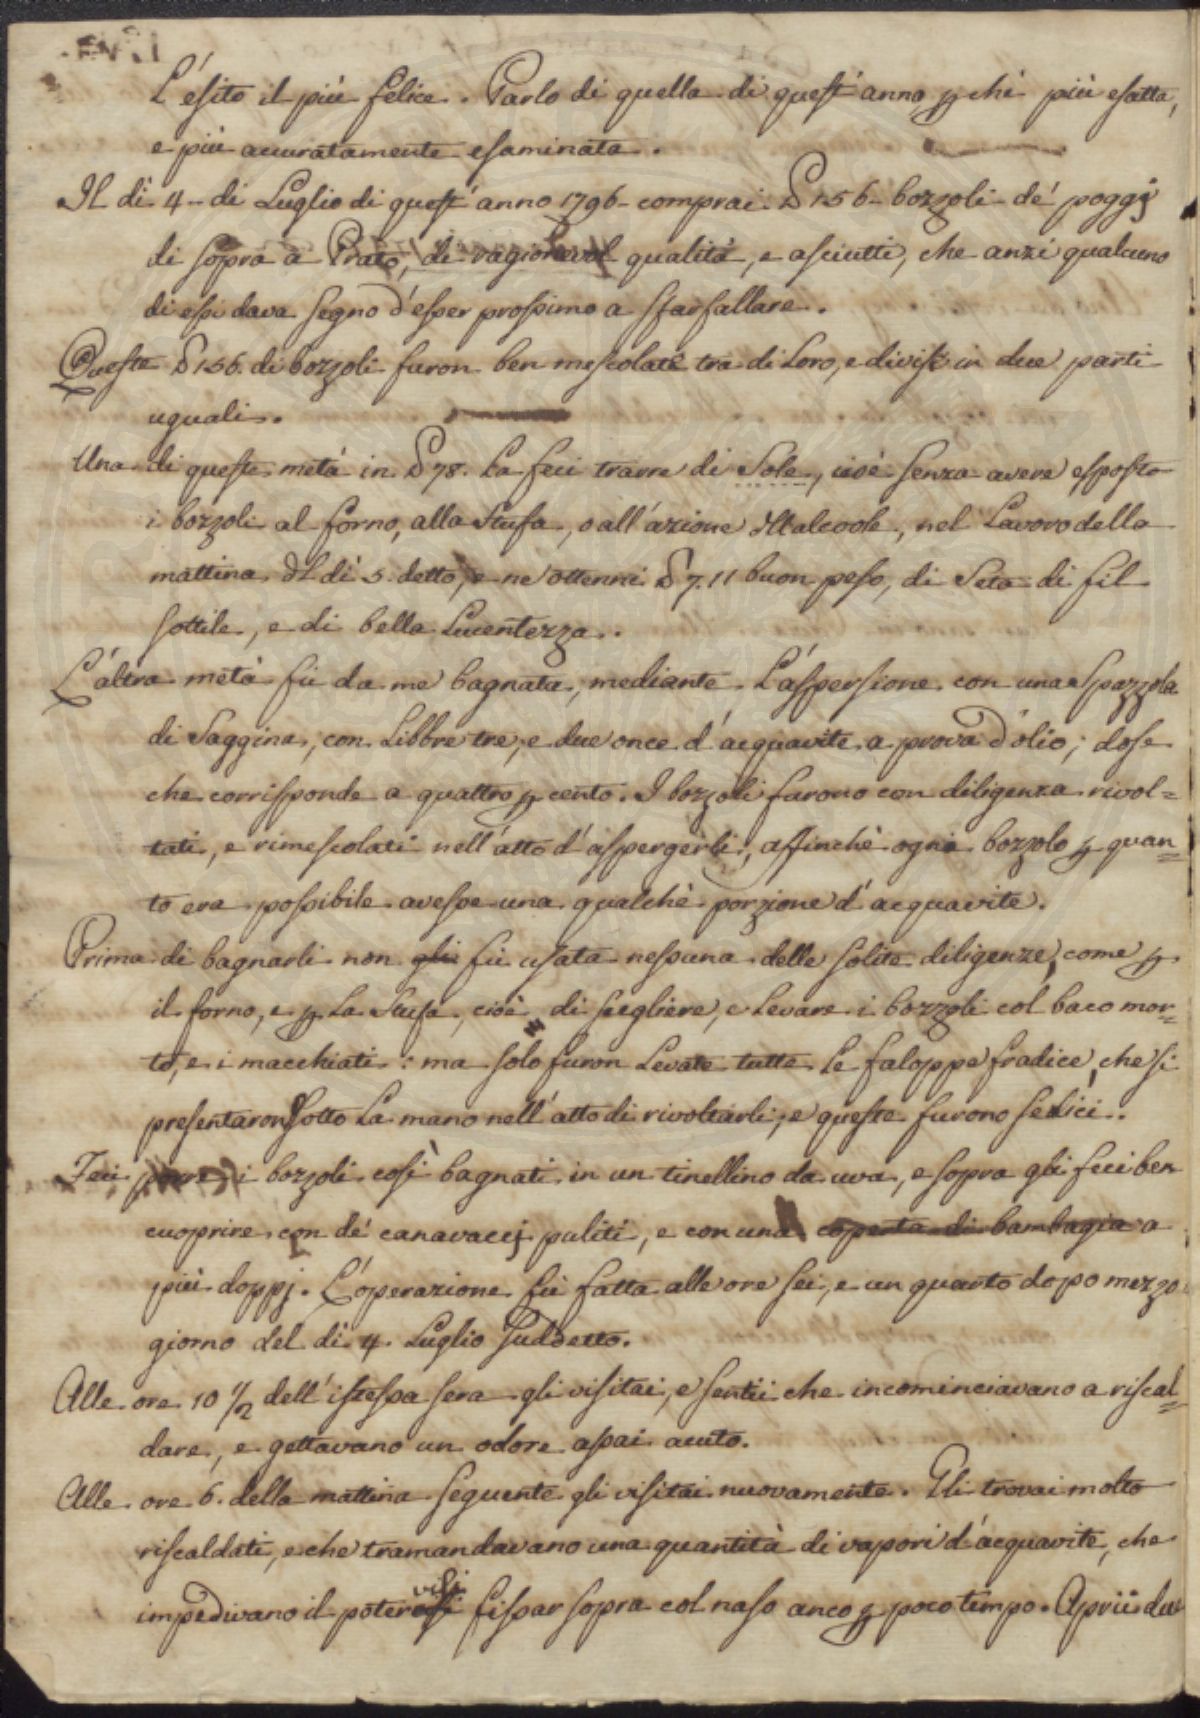 L'esito il più felice. Parlo di quella di quest'anno p chè più esatta,
e più accuratamente esaminata.
Il dì 4 di Luglio di quest'anno 1796 comprai £ 156 bozzoli de' poggj
di sopra a Prato, di ragionevol qualità, e asciutti, che anzi qualcuno
di essi dava segno d'esser prossimo a sfarfallare.
Queste £ 156. di bozzoli furon ben mescolate tra di Loro, e divise in due parti
uguali.
Una di queste metà in £ 78. La feci trarre di Sole, cioè senza avere esposto
i bozzoli al forno, alla Stufa, o all'azione dell'alcoole, nel Lavoro della
mattina del dì 5. detto, e ne ottenni £ 7.11 buon peso, di Seta di fil
sottile, e di bella Lucentezza.
L'altra metà fù da me bagnata, mediante L'aspersione con una Spazzola
di Saggina, con Libbre tre, e due once d'acquavite a prova d'olio; dose
che corrisponde a quattro p cento. I bozzoli furono con diligenza rivol=
tati, e rimescolati nell'atto d'aspergerli, affinchè ogni bozzolo p quan=
to era possibile avesse una qualchè porzione d'acquavite.
Prima di bagnarli non gli fù usata nessuna delle solite diligenze, come p
il forno, e p La Stufa, cioè di scegliere, e Levare i bozzoli col baco mor=
to, e i macchiati: ma solo furon Levate tutte Le faloppe fradice, che si
presentaron sotto La mano nell'atto di rivoltarli, e queste furono sedici.
Feci porre i bozzoli così bagnati in un tinellino da uva, e sopra gli feci ben
cuoprire con de' canavaccj puliti, e con una coperta di bambagia a
più doppj. L'operazione fù fatta alle ore sei, e un quarto dopo mezzo
giorno del dì 4. Luglio suddetto.
Alle ore 10 1/2 dell'istessa sera gli visitai, e sentii che incominciavano a riscal=
dare, e gettavano un odore assai acuto.
Alle ore 6. della mattina seguente gli visitai nuovamente. Gli trovai molto
riscaldati, e che tramandavano una quantità di vapori d'acquavite, che
impedivano il potervisi fissar sopra col naso anco p poco tempo. Aprii due